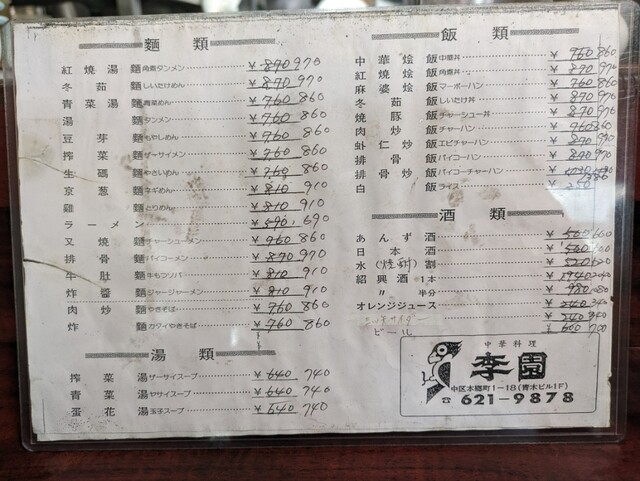 麵類
紅燒湯麵 角煮タンメン ￥870 970
冬茹麵 しいたけめん ￥870 970
青菜湯麵 ￥760 860
湯麵 タンメン ￥760 860
豆芽麵 もやしめん ￥760 860
搾菜麵 ザーサイメン ￥760 860
生碼麵 やさいめん ￥760 860
京葱麵 ネギめん ￥810 910
雞麵 とりめん ￥810 910
ラーメン ￥590 690
叉燒麵 チャーシューメン 860
排骨麵 パイコーメン ￥870 970
牛肚麵 牛もツリバ ￥810 910
炸醬麵 ジャージャーメン ￥810 910
肉炒麵 やきそば ￥760 860
炸麵 カタイやきそば ￥760 860
湯類
搾菜湯 ザーサイスープ ￥640 740
青菜湯 ヤサイスープ ￥640 740
蛋花湯 玉子スープ ￥640 740
飯類
中華烩飯 中華丼 ￥760 860
紅燒烩飯 角煮丼 ￥870 970
麻婆烩飯 マーボーハン ￥760 860
冬茹飯 しいたけ丼 ￥870 970
燒豚飯 チャーシュー丼 ￥870 970
肉炒飯 チャーハン ￥760 860
蝦仁炒飯 エビチャーハン ￥870 970
排骨飯 パイコーハン ￥870 970
排骨炒飯 パイコーチャーハン
白飯 ライス ￥250
酒類
あんず酒 ￥560 660
日本酒 ￥500
水(焼酎)割 ￥520 620
紹興酒 1本 ￥1940 2040
〃 半分 ￥980 1080
オレンジジュース ￥240 340
￥240 340
ビール ￥600 700
中華料理
李園
中区本郷町1-18(青木ビル1F)
☎621-9878